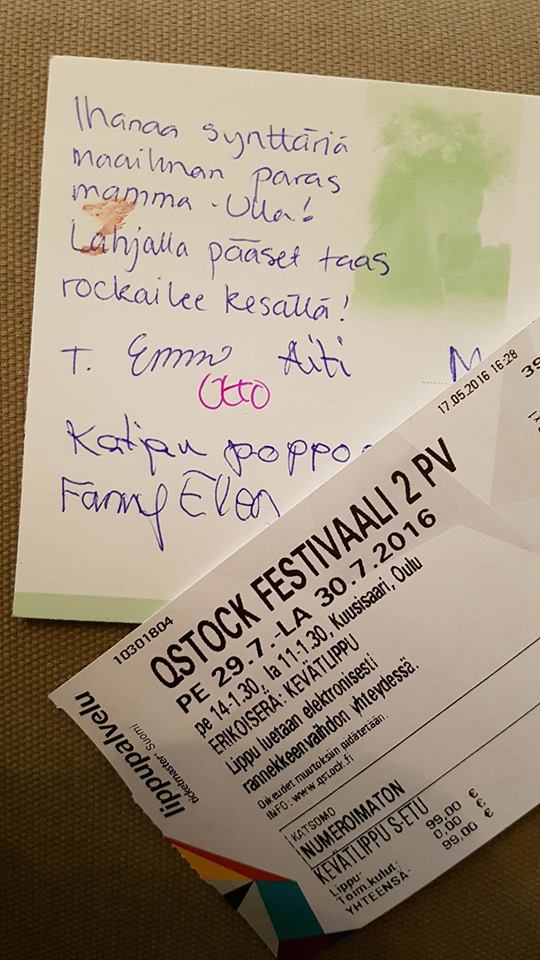 Ihanaa synttäriä
maailman paras
mamma-Ulla!
Lahjalla pääset taas
rockailee kesällä!
T. Emmi Äiti
Otto
Katjan poppo
Fanny Elen
17.05.2016 16:28
10301804
QSTOCK FESTIVAALI 2 PV
PE 29.7.-LA 30.7.2016
pe 14-1.30, la 11-1.30, Kuusisaari, Oulu
ERIKOISERÄ: KEVÄTLIPPU
Lippu luetaan elektronisesti
rannekkeenvaihdon yhteydessä.
Oikeudet muutoksiin pidätetään.
INFO: www.qstock.fi
lippupalvelu
ticketmaster Suomi
KATSOMO
NUMEROIMATON
KEVÄTLIPPU S-ETU
Lippu: 99,00 €
Toim.kulut: 0,00 €
YHTEENSÄ: 99,00 €